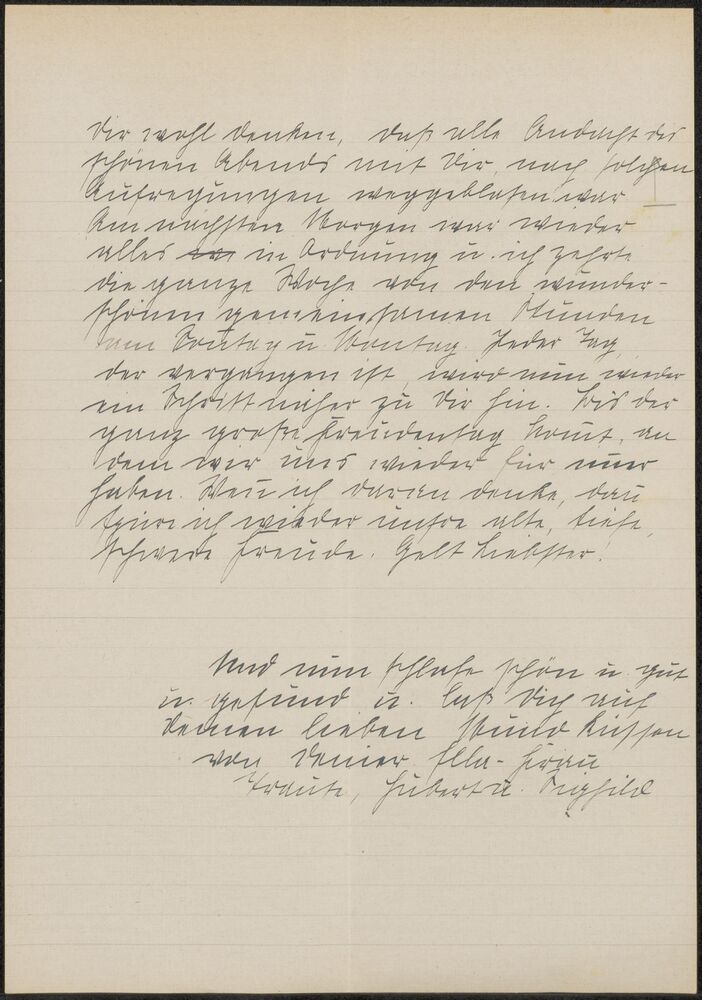 Dir wohl denken, daß alle Andacht des
schönen Abends mit Dir, nach solchen
Aufregungen weggeblasen war.
Am nächsten Morgen war wieder
alles in Ordnung u. ich zehrte
die ganze Woche von den wunder-
schönen gemeinsamen Stunden
vom Sontag u. Montag. Jeder Tag,
der vergangen ist, wird nun wieder
ein Schritt näher zu Dir hin. Bis der
ganz große Freudentag komt, an
dem wir uns wieder für immer
haben. Wen ich daran denke, dan
spüre ich wieder unsre alte, tiefe,
schwere Freude. Gelt Liebster!
Und nun schlafe schön u. gut
u. gesund u. laß Dich auf
deinen lieben Mund küssen
von Deiner Ella-Frau
Traute, Hubert u. Sighild